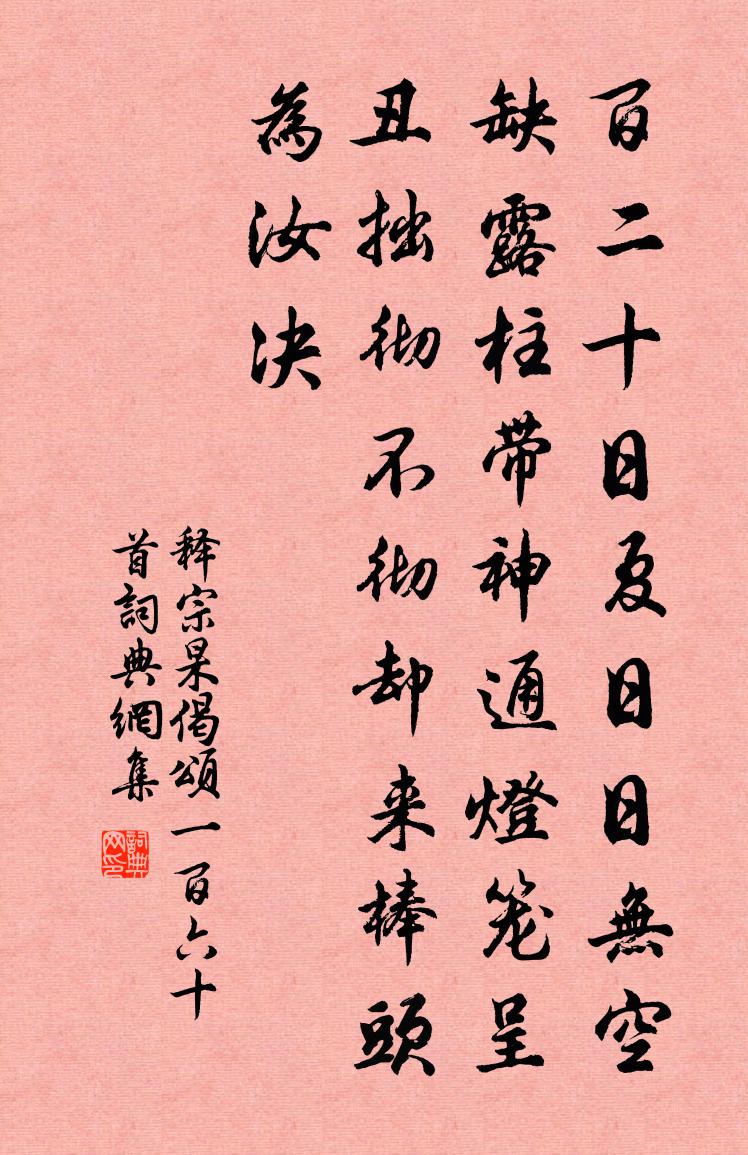 百二十日夏日日無空
缺露柱带神通燈笼呈
丑拙彻不彻却来棒頭
為汝决
释宗杲偈頌一百六十
首詞典網集
詞典
网印